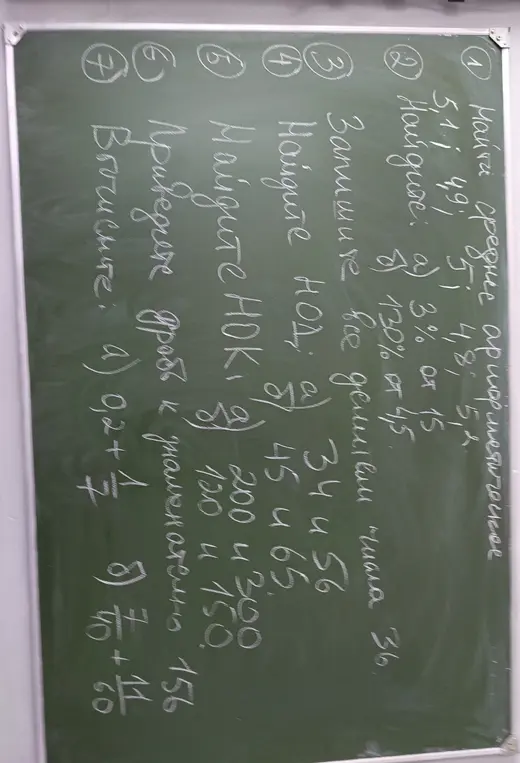 ① Найти среднее арифметическое
5,1; 4,9; 5; 4,8; 5,2
② Найдите: а) 3% от 15
б) 130% от 4,5
③ Запишите все делители числа 36.
④ Найдите НОД: а) 34 и 56
б) 45 и 65.
⑤ Найдите НОК: а) 200 и 300
б) 120 и 150.
⑥ Приведите дробь к знаменателю 156
⑦ Вычислите: а) 0,2 + 1/7 б) 7/40 + 11/60